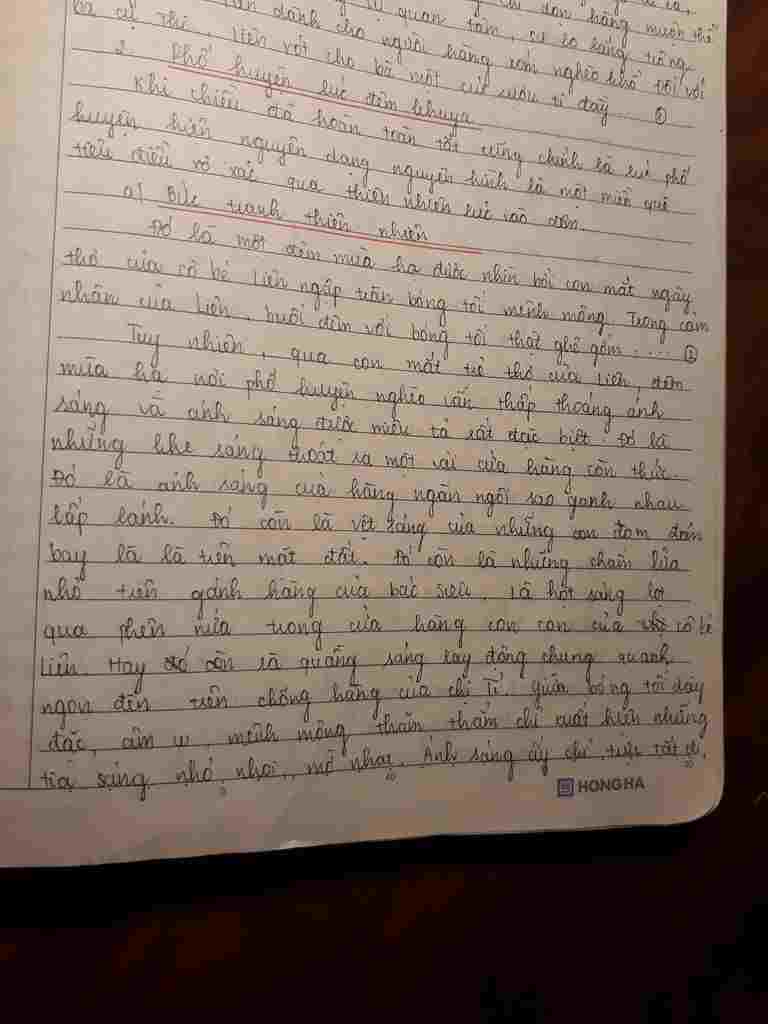 quan tâm, sự lo lắng
dành cho người hàng xóm nghèo khổ. Đối với
bà cụ Thi, Liên rót cho bà một cút rượu ti đầy ①
2. Phố huyện lúc đêm khuya
Khi chiều đã hoàn toàn tắt cũng chính là lúc phố
huyện hiện nguyên dạng nguyên hình là một miền quê
tiêu điều xơ xác qua thiên nhiên lúc vào đêm.
a) Bức tranh thiên nhiên
Đó là một đêm mùa hạ được nhìn bởi con mắt ngây
thơ của cô bé Liên ngập tràn bóng tối mênh mông. Trong cảm
nhận của Liên, buổi đêm với bóng tối thật ghê gớm ..... ②
Tuy nhiên, qua con mắt trẻ thơ của Liên, đêm
mùa hạ nơi phố huyện nghèo vẫn thấp thoáng ánh
sáng và ánh sáng được miêu tả rất đặc biệt. Đó là
những khe sáng thoát ra một vài cửa hàng còn thức.
Đó là ánh sáng của hàng ngàn ngôi sao ganh nhau
lấp lánh. Đó còn là vệt sáng của những con đom đóm
bay là là trên mặt đất. Đó còn là những chấm lửa
nhỏ trên gánh hàng của bác siêu, là hột sáng lọt
qua phên nứa trong cửa hàng con con của cô bé
Liên. Hay còn là quầng sáng lay động chung quanh
ngọn đèn trên chõng hàng của chị Tí. Giữa bóng tối dày
đặc, âm u, mênh mông thăm thẳm chỉ xuất hiện những
tia sáng nhỏ nhoi, mờ nhạt. Ánh sáng ấy chỉ trực tắt đi.
HONG HA